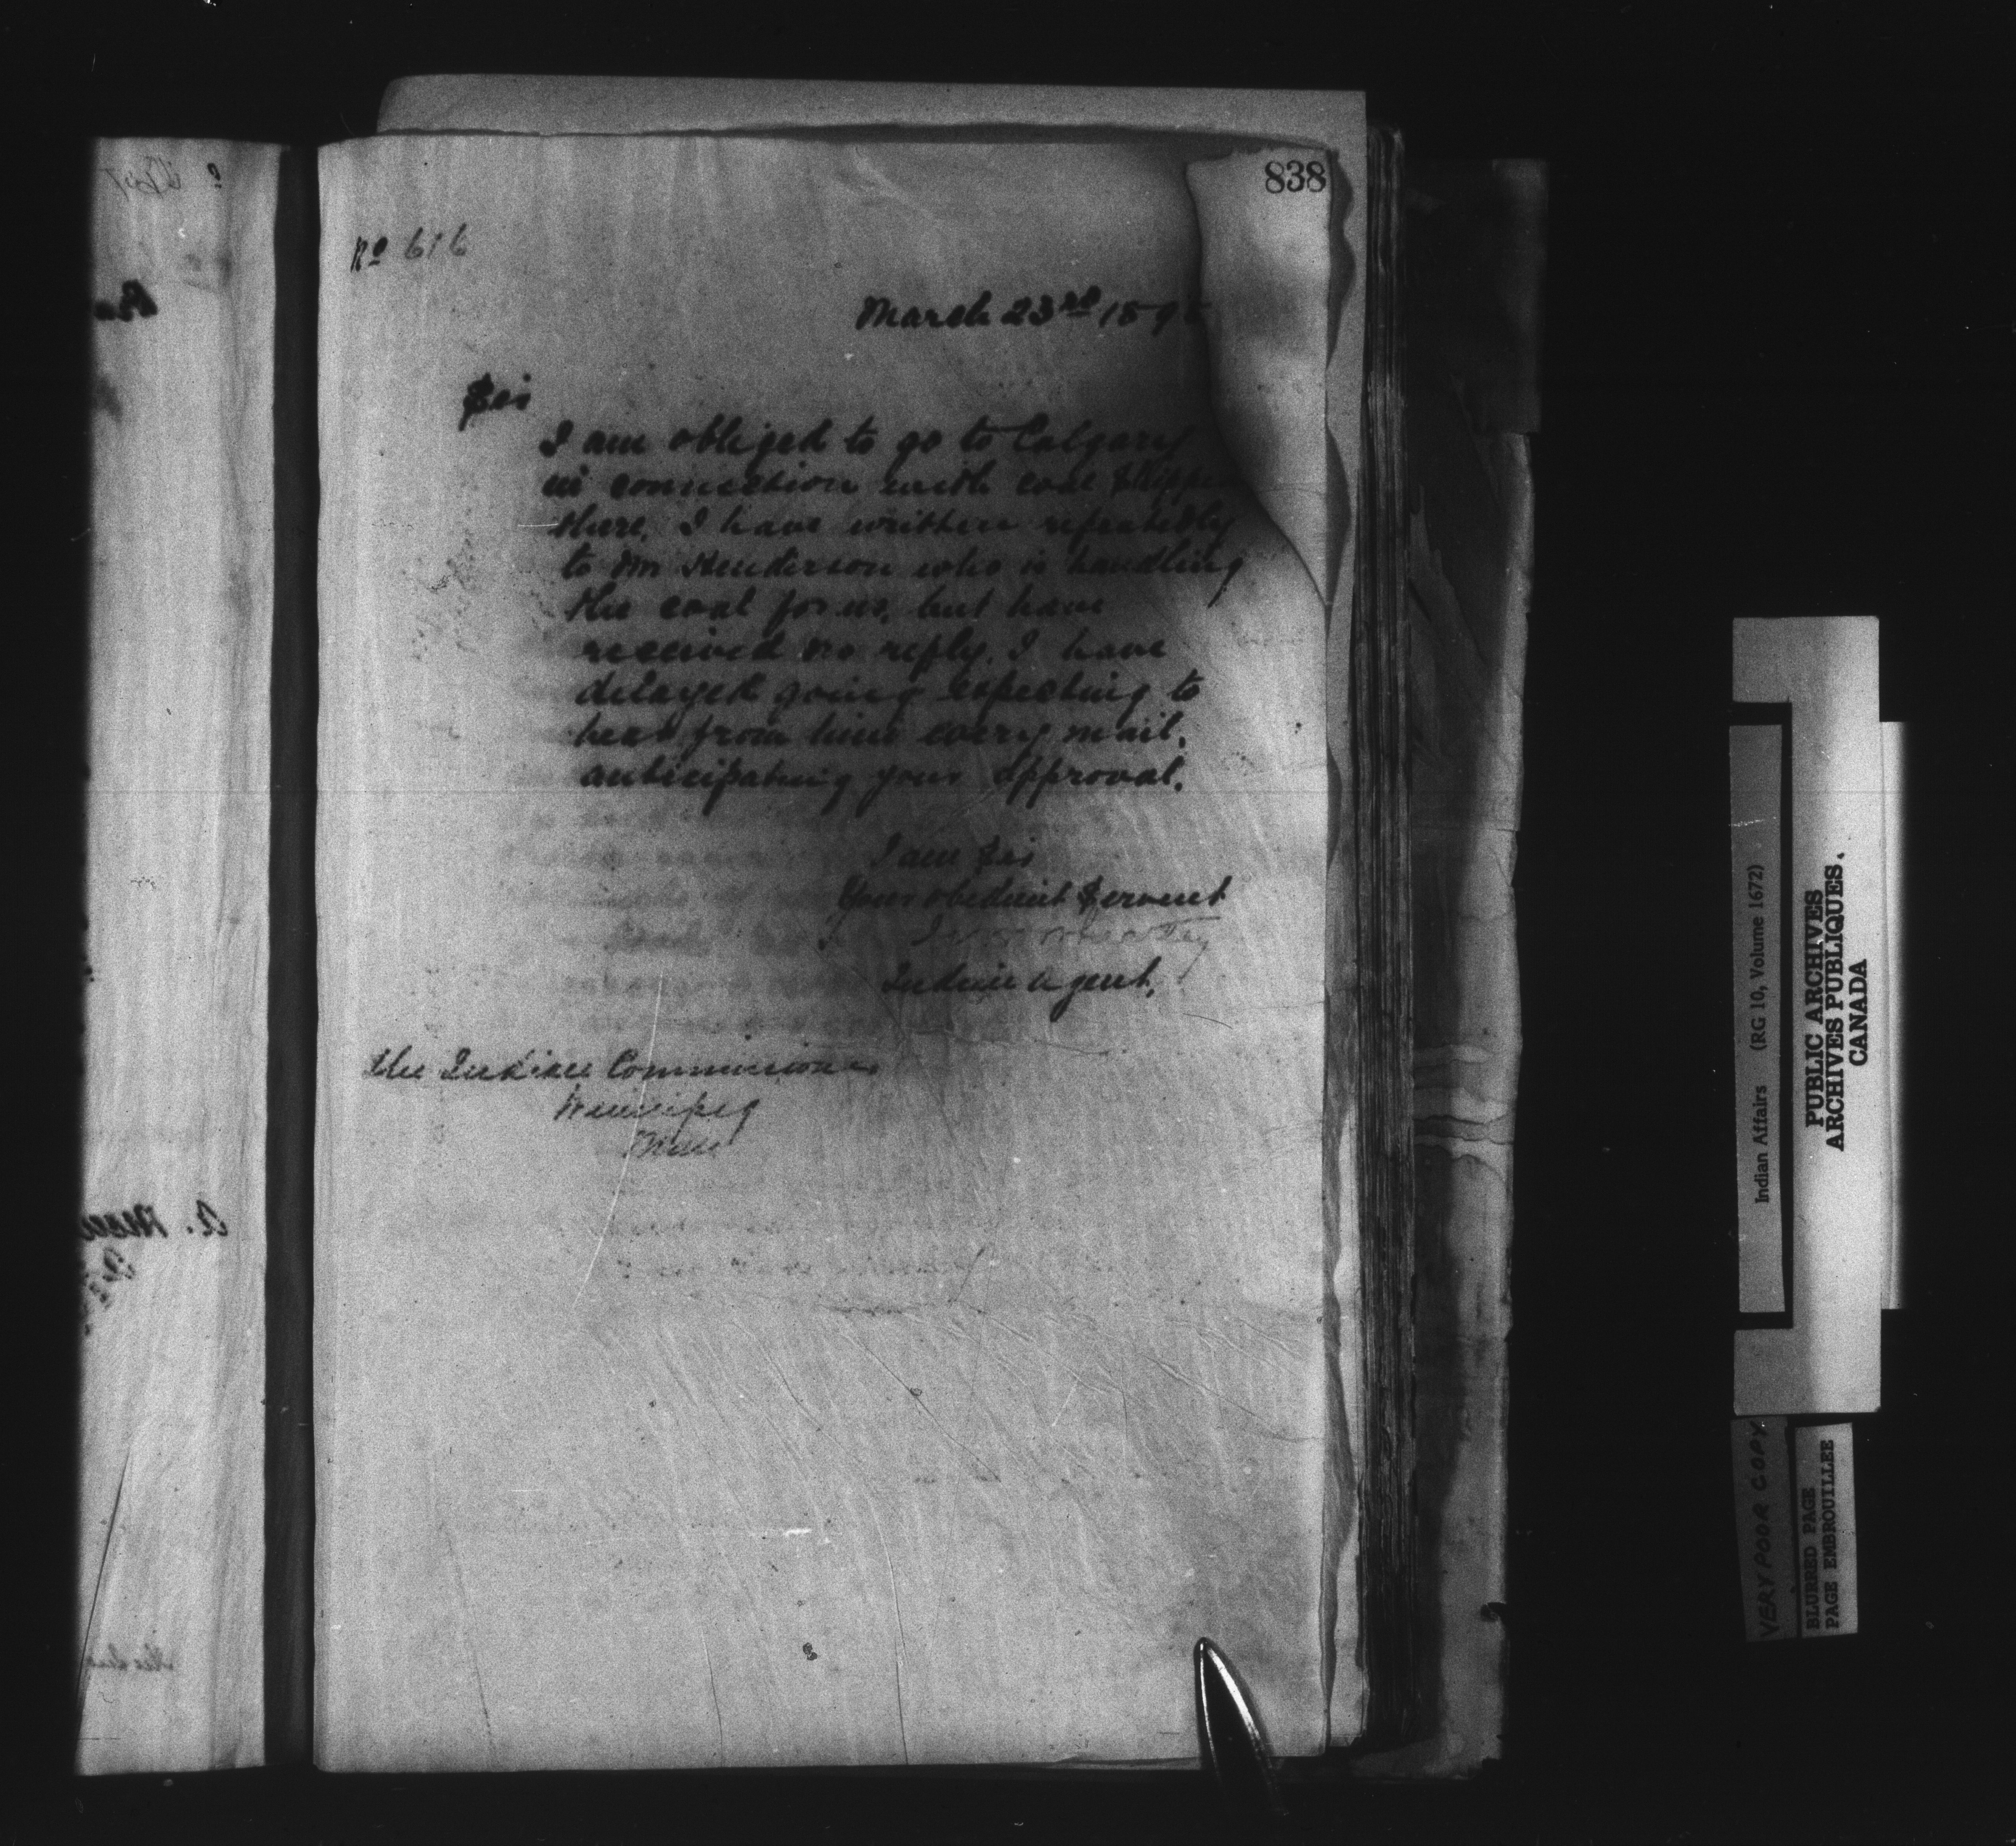 838
No 616
March 23rd 189
Sir
I am obliged to go to Calgary
in connection with coal shipped
there. I have written repeatedly
to Mr Henderson who is handling
the coal for us, but have
received no reply. I have
delayed going expecting to
hear from him every mail.
anticipating your approval.
I am Sir
Your obedient Servent
Indian Agent.
the Indian Commissioner
Winnipeg
Man
Indian Affairs (RG 10, Volume 1672)
PUBLIC ARCHIVES
ARCHIVES PUBLIQUES
CANADA
VERY POOR COPY
BLURRED PAGE
PAGE EMBROUILLEE